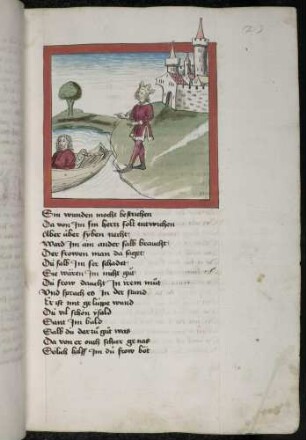 Sin wunden mocht bestrichen
Da von Im sin herr solt entwichen
Aber über syben necht
Ward Im ain ander salb braucht
Der frowen man da saget
Du salb Im ser schadet
Sie wären Im nicht gůt
Dü frow dacht In irem můt
Vnd sprach es In der stund
Er ist mit gelüpt wund
Dü vil schön ysald
Sant Im bald
Salb dü der zů gůt was
Da von er ouch sicher genas
Solich hilff Im dü frow bot